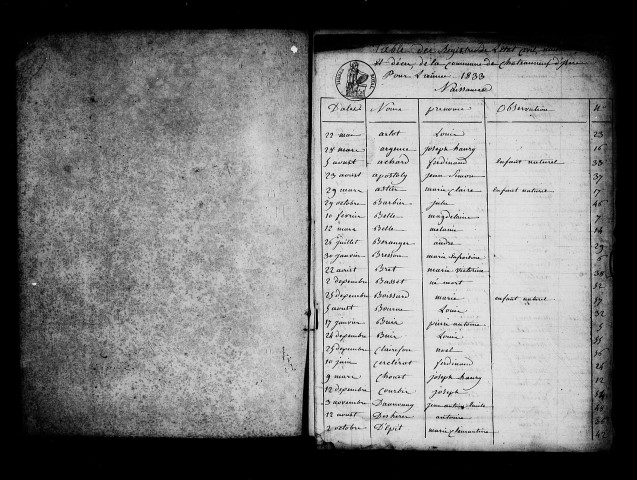 Table des Registres de l'Etat civil
et décès, de la Commune de Chateauneuf d'isère
Pour L'année 1833
Naissances
Dates Noms prénoms Observation N°
22 mai artot Louis 23
28 mars argence joseph haury 16
5 aoust achard ferdinand Enfant naturel 33
23 aoust apostoly jean Simon 37
29 mars astier marie claire Enfant naturel 17
29 octobre Barbier julie 46
10 fevrier Belle magdelaine 7
12 mars Belle melanie 14
26 juillet Beranger andre 29
30 janvier Bresson marie 6
22 aoust Bret marie victorine 36
2 decembre Basset né mort 52
25 decembre Boissard marie enfant naturel 57
5 aoust Bourne Louis 32
17 janvier Buix pierre antoine 5
24 decembre Buix Louis 55
25 decembre Clairefou noel 56
10 juin ferdinand 24
9 mars Chovet joseph haury 12
12 decembre Courbis joseph 54
3 novembre Daumoury
12 aoust antoine
2 octobre D'Epit marie clemantine 42